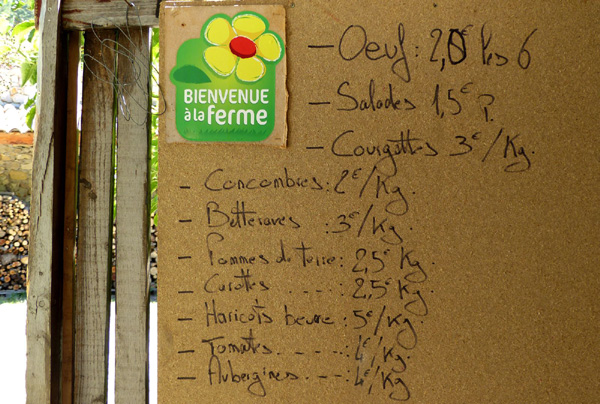 BIENVENUE
à la ferme
- Oeuf: 2,0€ les 6
- Salades 1,5€ P.
- Courgettes 3€/Kg.
- Concombres: 2€/Kg.
- Betteraves : 3€/Kg.
- Pommes de terre: 2,5€ Kg
- Carottes .....: 2,5€ Kg.
- Haricots beurre: 5€/Kg.
- Tomates. - - - -: 4€/Kg.
- Aubergines. - - -: 4€/Kg